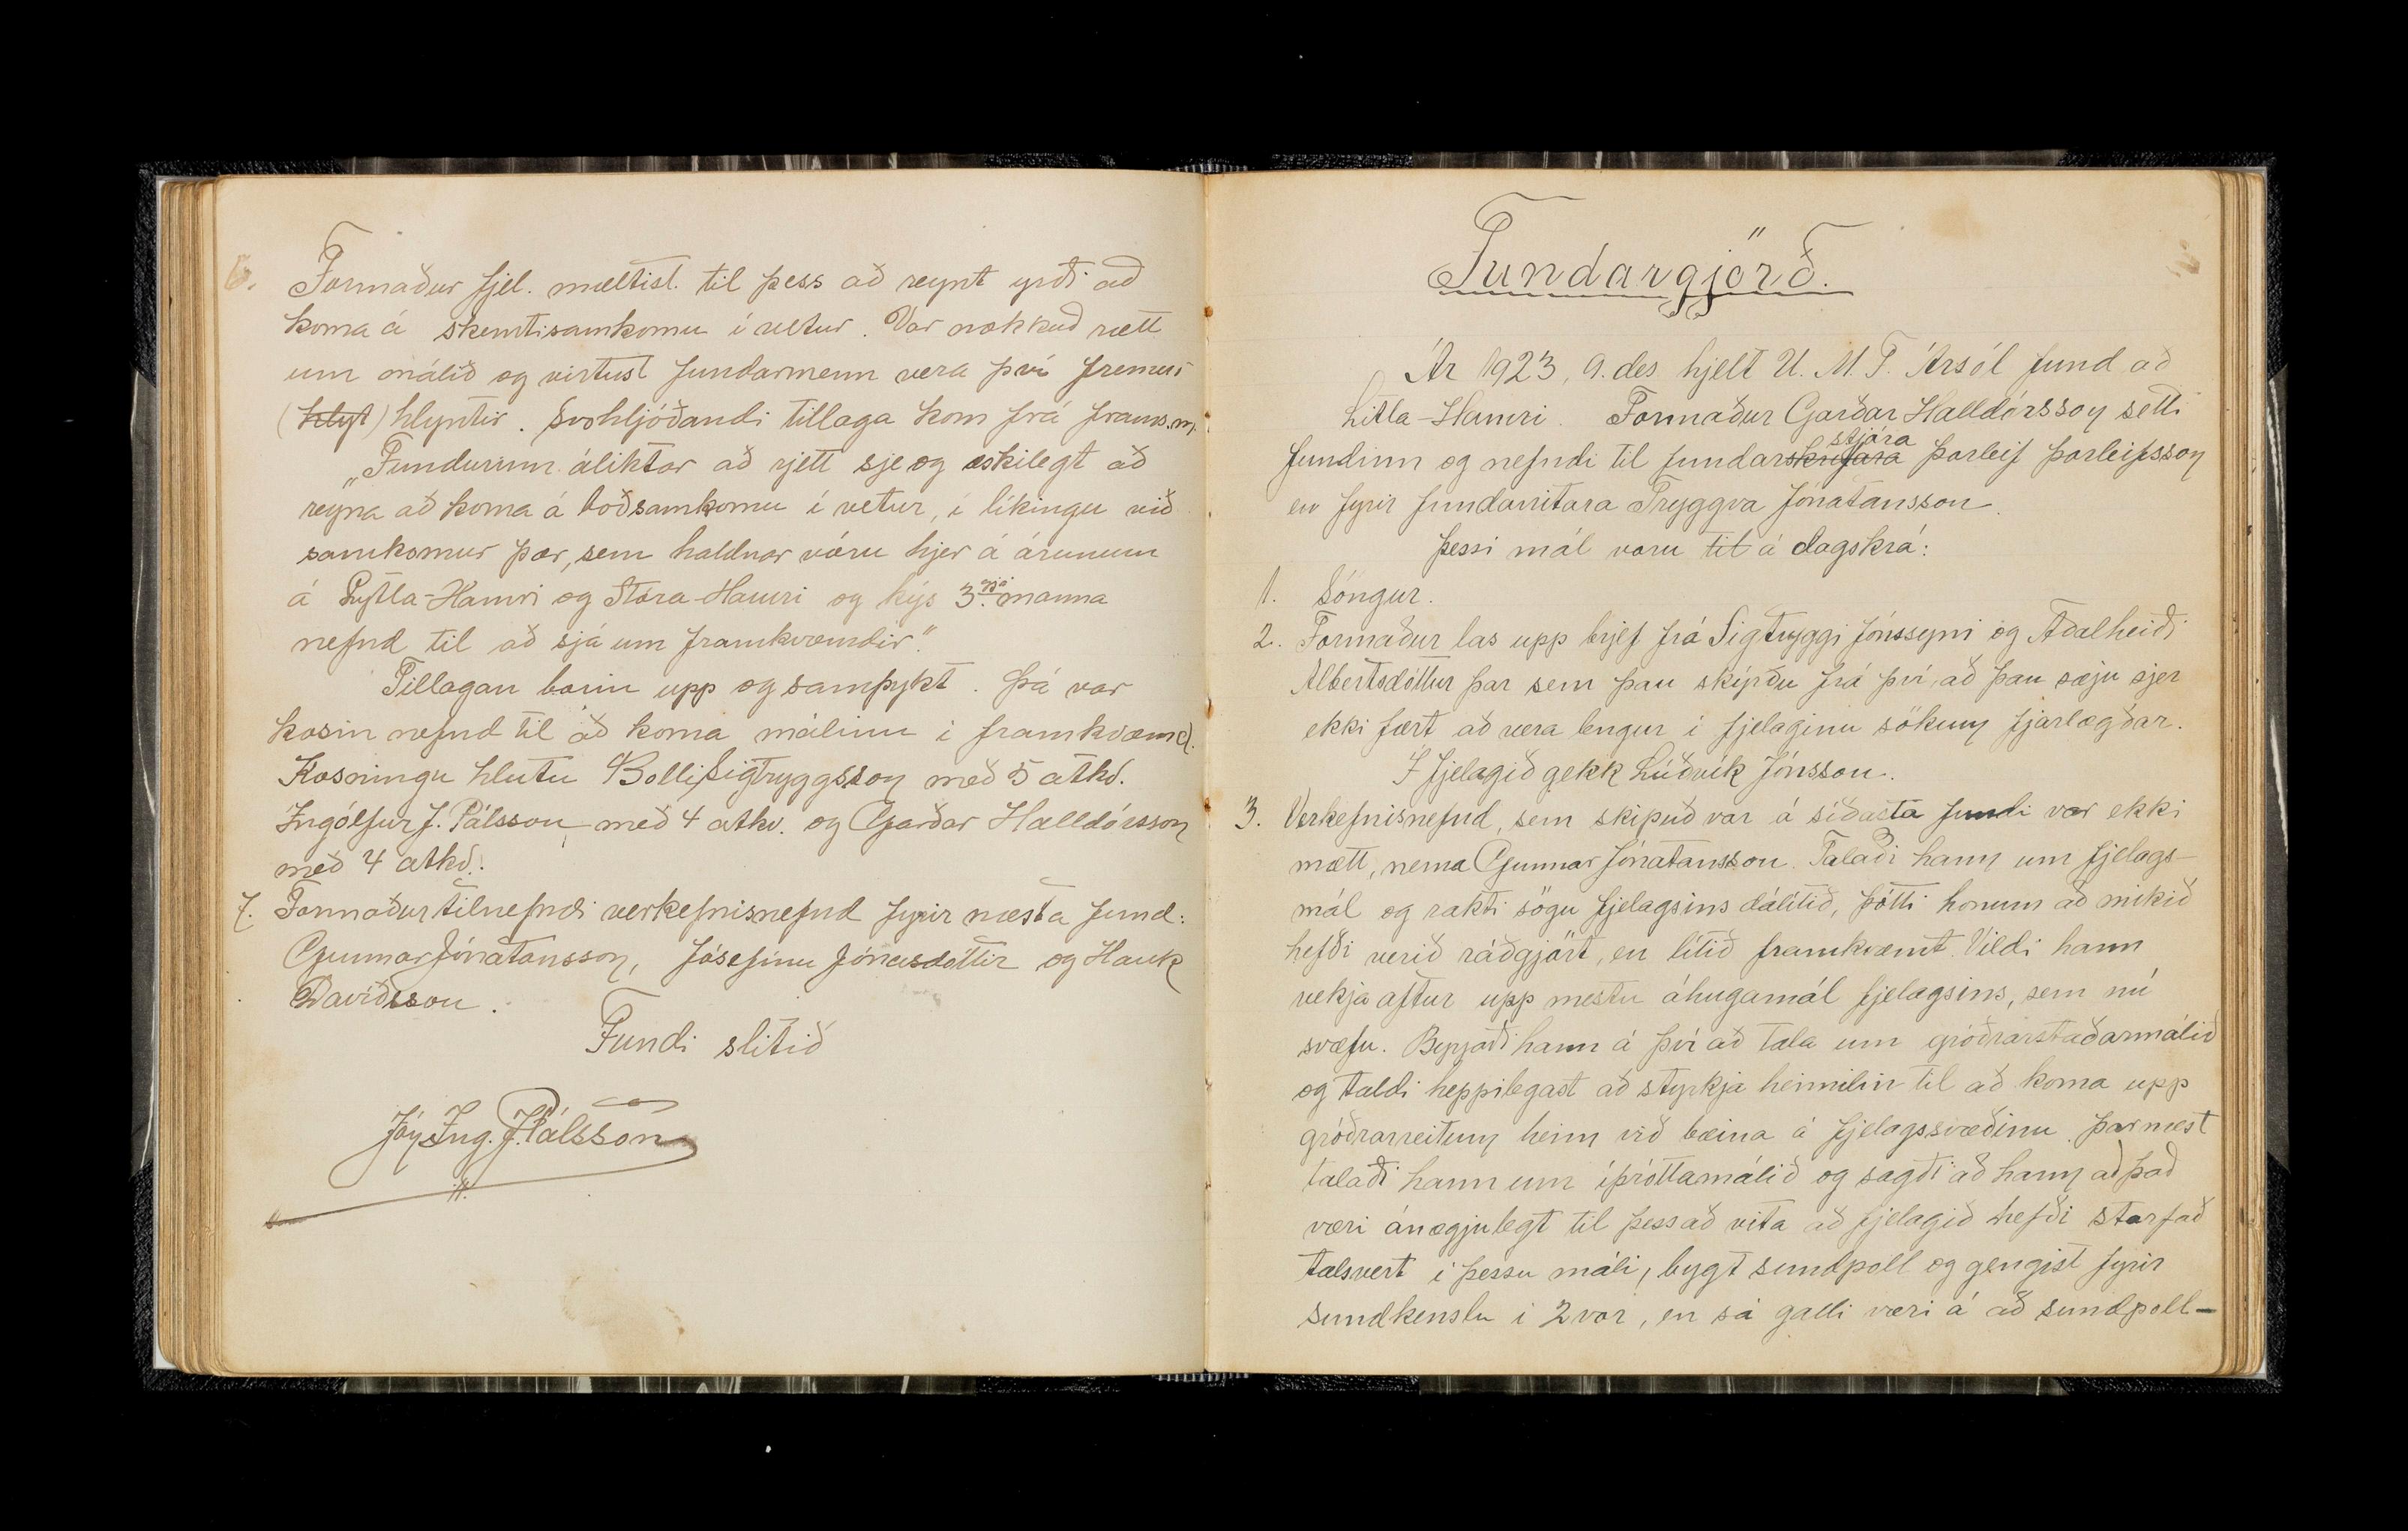 6. Formaður fjel. mæltist til þess að reynt yrði að
koma á skemtisamkomu í vetur. Var nokkuð rætt
um málið og virtust fundarmenn vera því fremur
(hlyt) hlyntir. Svohljóðandi tillaga kom frá frams.m.
„Fundurinn áliktar að rjett sje og æskilegt að
reyna að koma á boðsamkomu í vetur, í líkingu við
samkomur þær, sem haldnar vóru hjer á árunum
á Lytla-Hamri og Stóra-Hamri og kýs 3.ja manna
nefnd til að sjá um framkvæmdir."
Tillagan borin upp og samþykt. Þá var
kosin nefnd til að koma málinu í framkvæmd.
Kosningu hlutu Bolli Sigtryggsson með 5 atkv.
Ingólfur J. Pálsson með 4 atkv. og Garðar Halldórsson
með 4 atkv.
7. Formaður tilnefndi verkefnisnefnd fyrir næsta fund:
Gunnar Jónatansson, Jósefínu Jónasdóttir og Hauk
Davíðsson.
Fundi slitið
Jón Ing. J. Pálsson
Fundargjörð.
Ár 1923, 9. des. hjelt U. M. F. Ársól fund að
Litla-Hamri. Formaður Garðar Halldórsson setti
fundinn og nefndi til fundarskrifara stjóra Þorleif Þorleifsson
en fyrir fundarritara Tryggva Jónatansson.
Þessi mál voru til á dagskrá:
1. Söngur.
2. Formaður las upp brjef frá Sigtryggi Jónssyni og Aðalheiði
Albertsdóttur þar sem þau skírðu frá því, að þau sæju sjer
ekki fært að vera lengur í fjelaginu sökum fjarlægðar.
Í fjelagið gekk Lúðvík Jónsson.
3. Verkefnisnefnd, sem skipuð var á síðasta fundi var ekki
mætt, nema Gunnar Jónatansson. Talaði hann um fjelags-
mál og rakti sögu fjelagsins dálítið, þótti honum að mikið
hefði verið ráðgjört, en lítið framkvæmt. Vildi hann
vekja aftur upp mestu áhugamál fjelagsins, sem nú
svæfu. Byrjaði hann á því að tala um gróðrarstaðarmálið
og taldi heppilegast að styrkja heimilin til að koma upp
gróðrarreitum heim við bæina á fjelagssvæðinu. Þarnæst
talaði hann um íþróttamálið og sagði að hann að það
væri ánægjulegt til þess að vita að fjelagið hefði starfað
talsvert í þessu máli, bygt sundpoll og gengist fyrir
sundkenslu í 2 vor, en sá galli væri á að sundpoll-